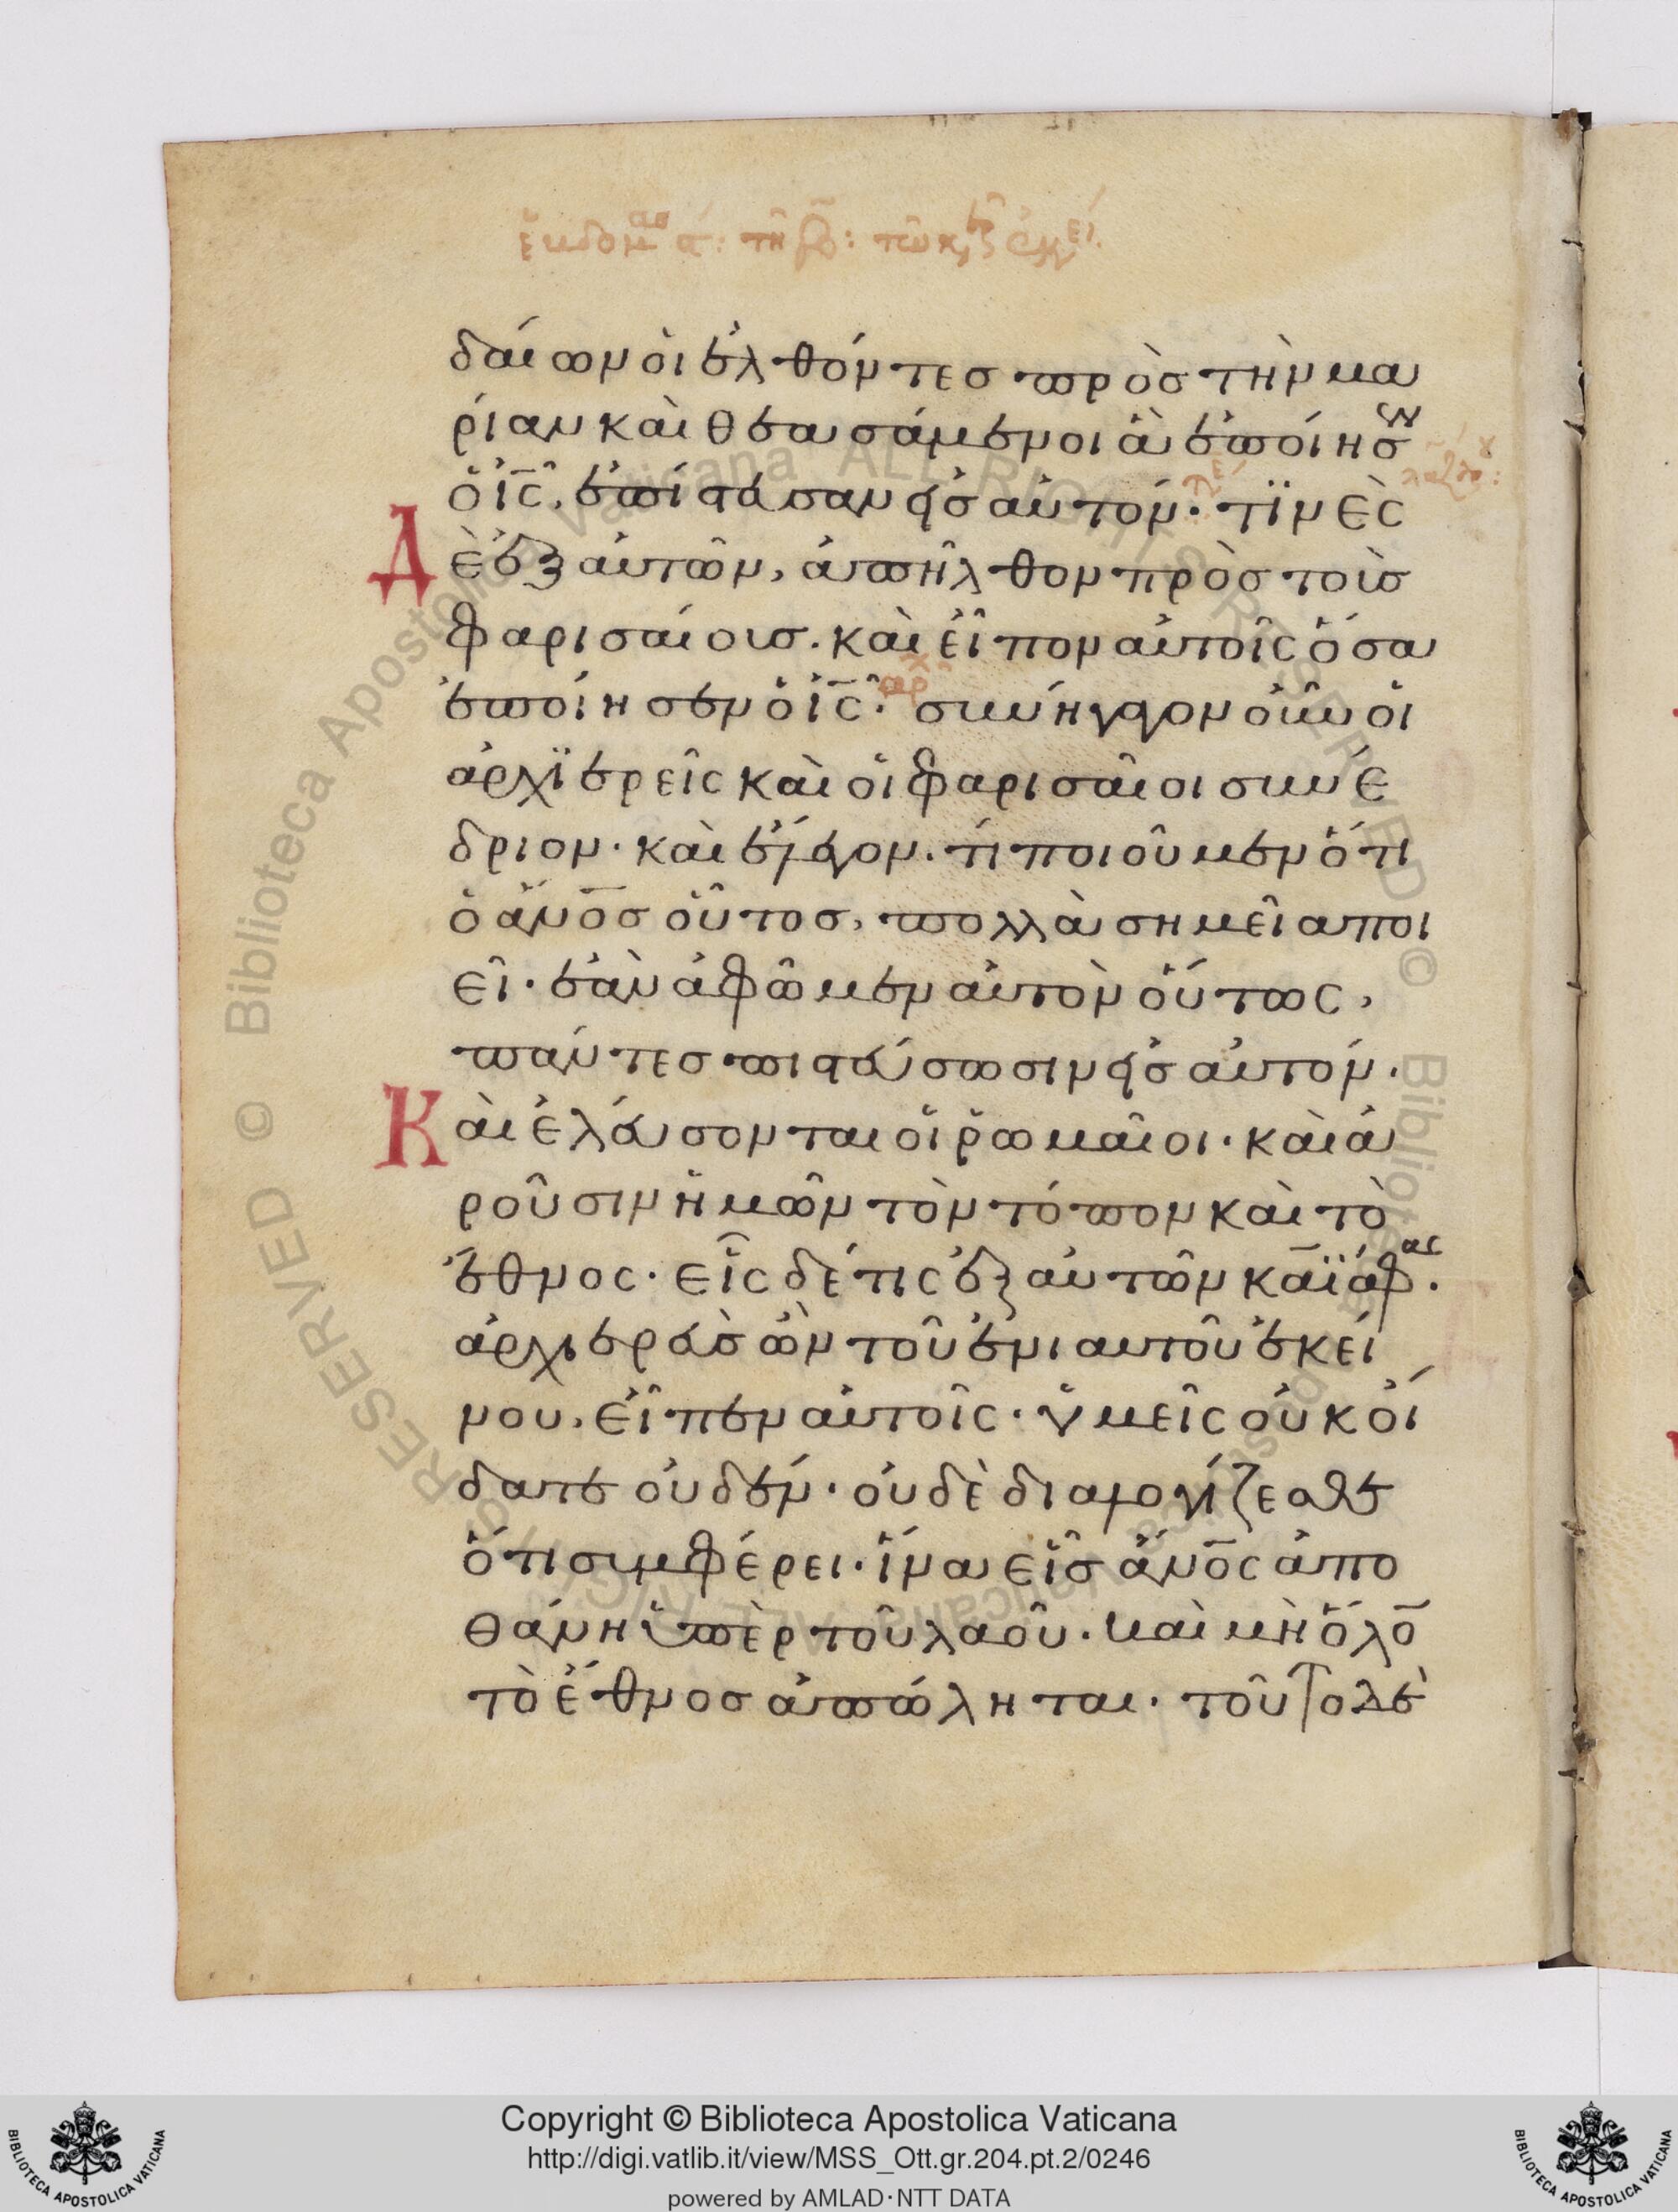 δαίων ὁι ἐλθόντεσ πρὸσ τὴν μα
ρίαν καὶ θεασάμενοι ἃ ἐποίησεν
ὁ ἰ̅ς̅, ἐπίστευσαν εἰσ αὐτόν· τϊνὲς
Δὲ ἐξ αὐτῶν, ἀπῆλθον πρὸσ τοὺσ
φαρισαίουσ. καὶ εἶπον αὐτοῖς ὅσα
ἐποίησεν ὁ ἰ̅ς̅· συνήγαγον οὖν οἱ
ἀρχϊερεῖς καὶ οἱ φαρισαῖοι συνέ
δριον· καὶ ἔλεγον. τί ποιοῦμεν ὅτι
ὁ ἄν̅ο̅σ οὗτοσ, πολλὰ σημεῖα ποι
εῖ· ἐὰν ἀφῶμεν αὐτὸν οὕτως,
πάντεσ πιστεύσωσιν εἰσ αὐτόν.
Καὶ ἐλεύσονται οἱ ῥωμαῖοι· καὶ ἀ
ροῦσιν ἡμῶν τὸν τόπον καὶ τὸ
ἔθνος· εἷς δέ τις ἐξ αὐτῶν καϊάφας.
ἀρχιερεὺσ ὢν τοῦ ἐνιαυτοῦ ἐκεί
νου, εἶπεν αὐτοῖς· ὑμεῖς οὐκ οἴ
δατε οὐδέν· οὐδὲ διαλογίζεσθε
ὅτι συμφέρει· ἵνα εἷσ ἄν̅ο̅ς ἀπο
θάνη ὑπὲρ τοῦ λαοῦ. καὶ μὴ ὅλο̅
τὸ ἔθνοσ ἀπώληται· τοῦτο δὲ
Copyright © Biblioteca Apostolica Vaticana
http://digi.vatlib.it/view/MSS_Ott.gr.204.pt.2/0246
powered by AMLAD·NTT DATA
BIBLIOTECA APOSTOLICA VATICANA
BIBLIOTECA APOSTOLICA VATICANA